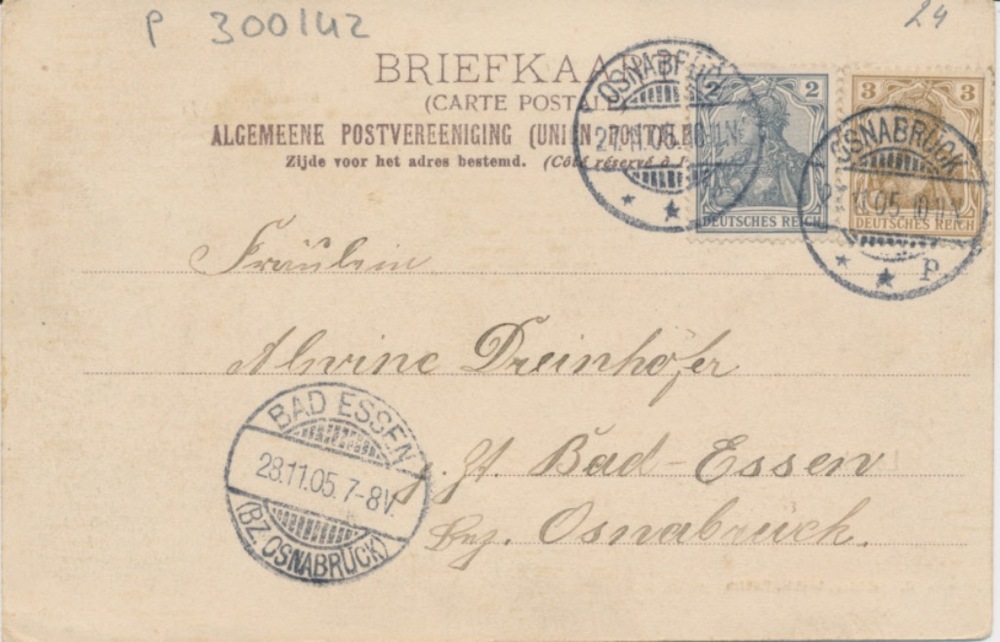 P 300142
24
BRIEFKAA
(CARTE POSTAL
ALGEMEENE POSTVEREENIGING (UNION POSTALE
Zijde voor het adres bestemd. (Côté réservé à l'
2
DEUTSCHES REICH
3 3
DEUTSCHES REICH
OSNABRÜCK
27.11.05. 10-11N.
OSNABRÜCK
11.05. 10-11N
P
Fräulein
Alwine Dreinhöfer
z. Zt. Bad-Essen
Bez. Osnabrück.
BAD ESSEN
28.11.05. 7-8V.
(BZ. OSNABRÜCK)